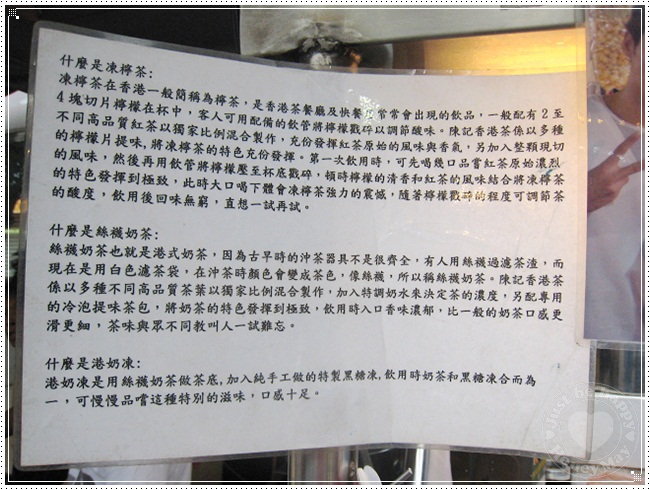 什麼是凍檸茶:
凍檸茶在香港一般簡稱為檸茶，是香港茶餐廳及快餐常會出現的飲品，一般配有2至
4塊切片檸檬在杯中，客人可用配備的飲管將檸檬戳碎以調節酸味。陳記香港茶係以多種
不同高品質紅茶以獨家比例混合製作，充份發揮紅茶原始的風味與香氣，另加入整顆現切
的檸檬片提味，將凍檸茶的特色充份發揮。第一次飲用時，可先喝幾口品嘗紅茶原始濃烈
的風味，然後再用飲管將檸檬壓至杯底戳碎，頓時檸檬的清香和紅茶的風味結合將凍檸茶
的特色發揮到極致，此時大口喝下體會凍檸茶強力的震憾，隨著檸檬戳碎的程度可調節茶
的酸度，飲用後回味無窮，直想一試再試。
什麼是絲襪奶茶:
絲襪奶茶也就是港式奶茶，因為古早時的沖茶器具不是很齊全，有人用絲襪過濾茶渣，而
現在是用白色濾茶袋，在沖茶時顏色會變成茶色，像絲襪，所以稱絲襪奶茶。陳記香港茶
係以多種不同高品質茶葉以獨家比例混合製作，加入特調奶水來決定茶的濃度，另配專用
的冷泡提味茶包，將奶茶的特色發揮到極致，飲用時入口香味濃郁，比一般的奶茶口感更
滑更細，茶味與眾不同教叫人一試難忘。
什麼是港奶凍:
港奶凍是用絲襪奶茶做茶底,加入純手工做的特製黑糖凍,飲用時奶茶和黑糖凍合而為
一，可慢慢品嚐這種特別的滋味，口感十足。
Just be happy